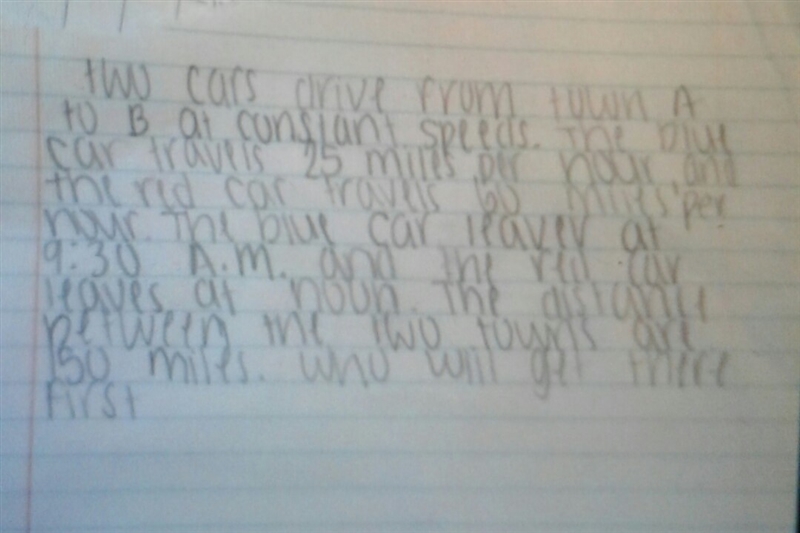 two cars drive from town A
to B at constant speeds. The blue
car travels 25 miles per hour and
the red car travels 60 miles per
hour. The blue car leaves at
9:30 A.M. and the red car
leaves at noon. The distance
between the two towns are
150 miles. who will get there
first